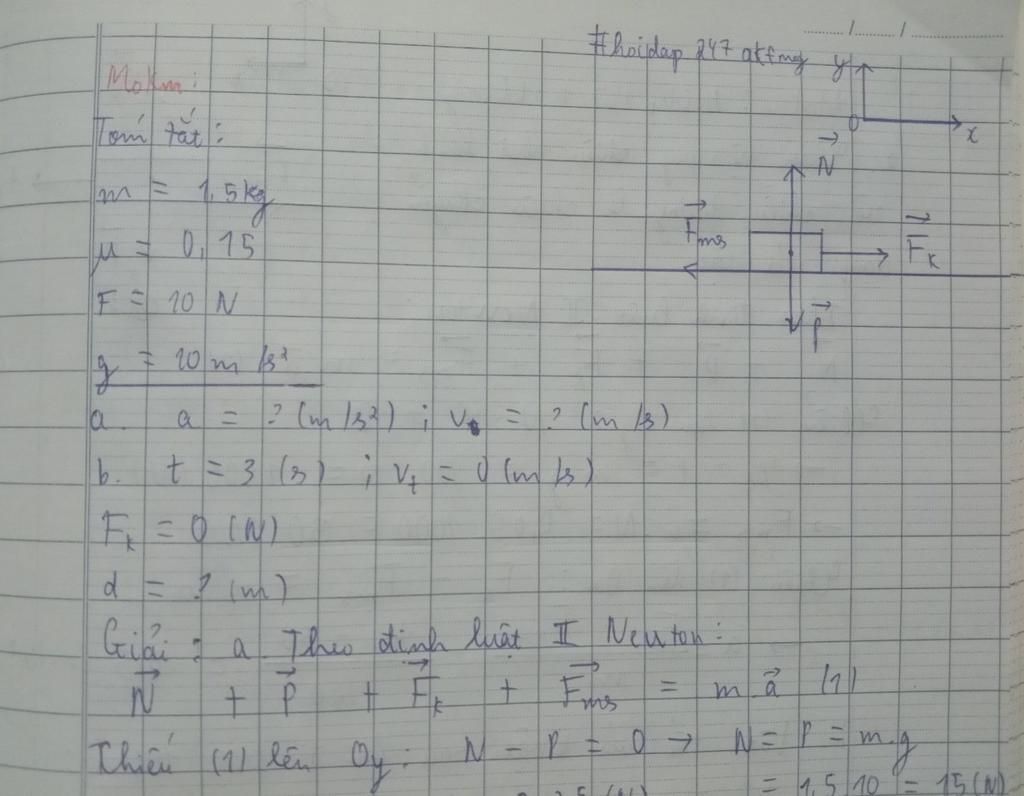 #hoidap 247 atfmg
y
0
x
Mokm:
Tóm tắt:
m = 1,5kg
μ = 0,15
F = 10 N
g = 10 m/s²
N⃗
F⃗ms
F⃗k
P⃗
a. a = ? (m/s²) ; v = ? (m/s)
b. t = 3 (s) ; vt = 0 (m/s)
Fk = 0 (N)
d = ? (m)
Giải: a. Theo định luật II Neuton:
N⃗ + P⃗ + F⃗k + F⃗ms = m a⃗ (1)
Chiếu (1) lên Oy: N - P = 0 → N = P = m.g
= 1,5.10 = 15 (N)